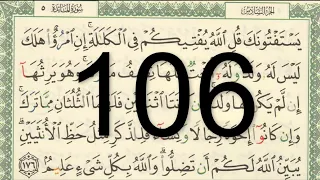 الجزء السادس
سورة المائدة ٥
يَسْتَفْتُونَكَ قُلِ ٱللَّهُ يُفْتِيكُمْ فِى ٱلْكَلَٰلَةِ إِنِ ٱمْرُؤٌا۟ هَلَكَ
لَيْسَ لَهُۥ وَلَدٌ وَلَهُۥٓ وَهُوَ يَرِثُهَآ
إِن لَّمْ يَكُن لَّهَا ٱثْنَتَيْنِ فَلَهُمَا ٱلثُّلُثَانِ مِمَّا تَرَكَ
وَإِن كَانُوٓا۟ إِخْوَةً رِّجَالًا وَنِسَآءً فَلِلذَّكَرِ مِثْلُ حَظِّ ٱلْأُنثَيَيْنِ
يُبَيِّنُ ٱللَّهُ لَكُمْ أَن تَضِلُّوا۟ وَٱللَّهُ بِكُلِّ شَىْءٍ عَلِيمٌۢ ١٧٦
106